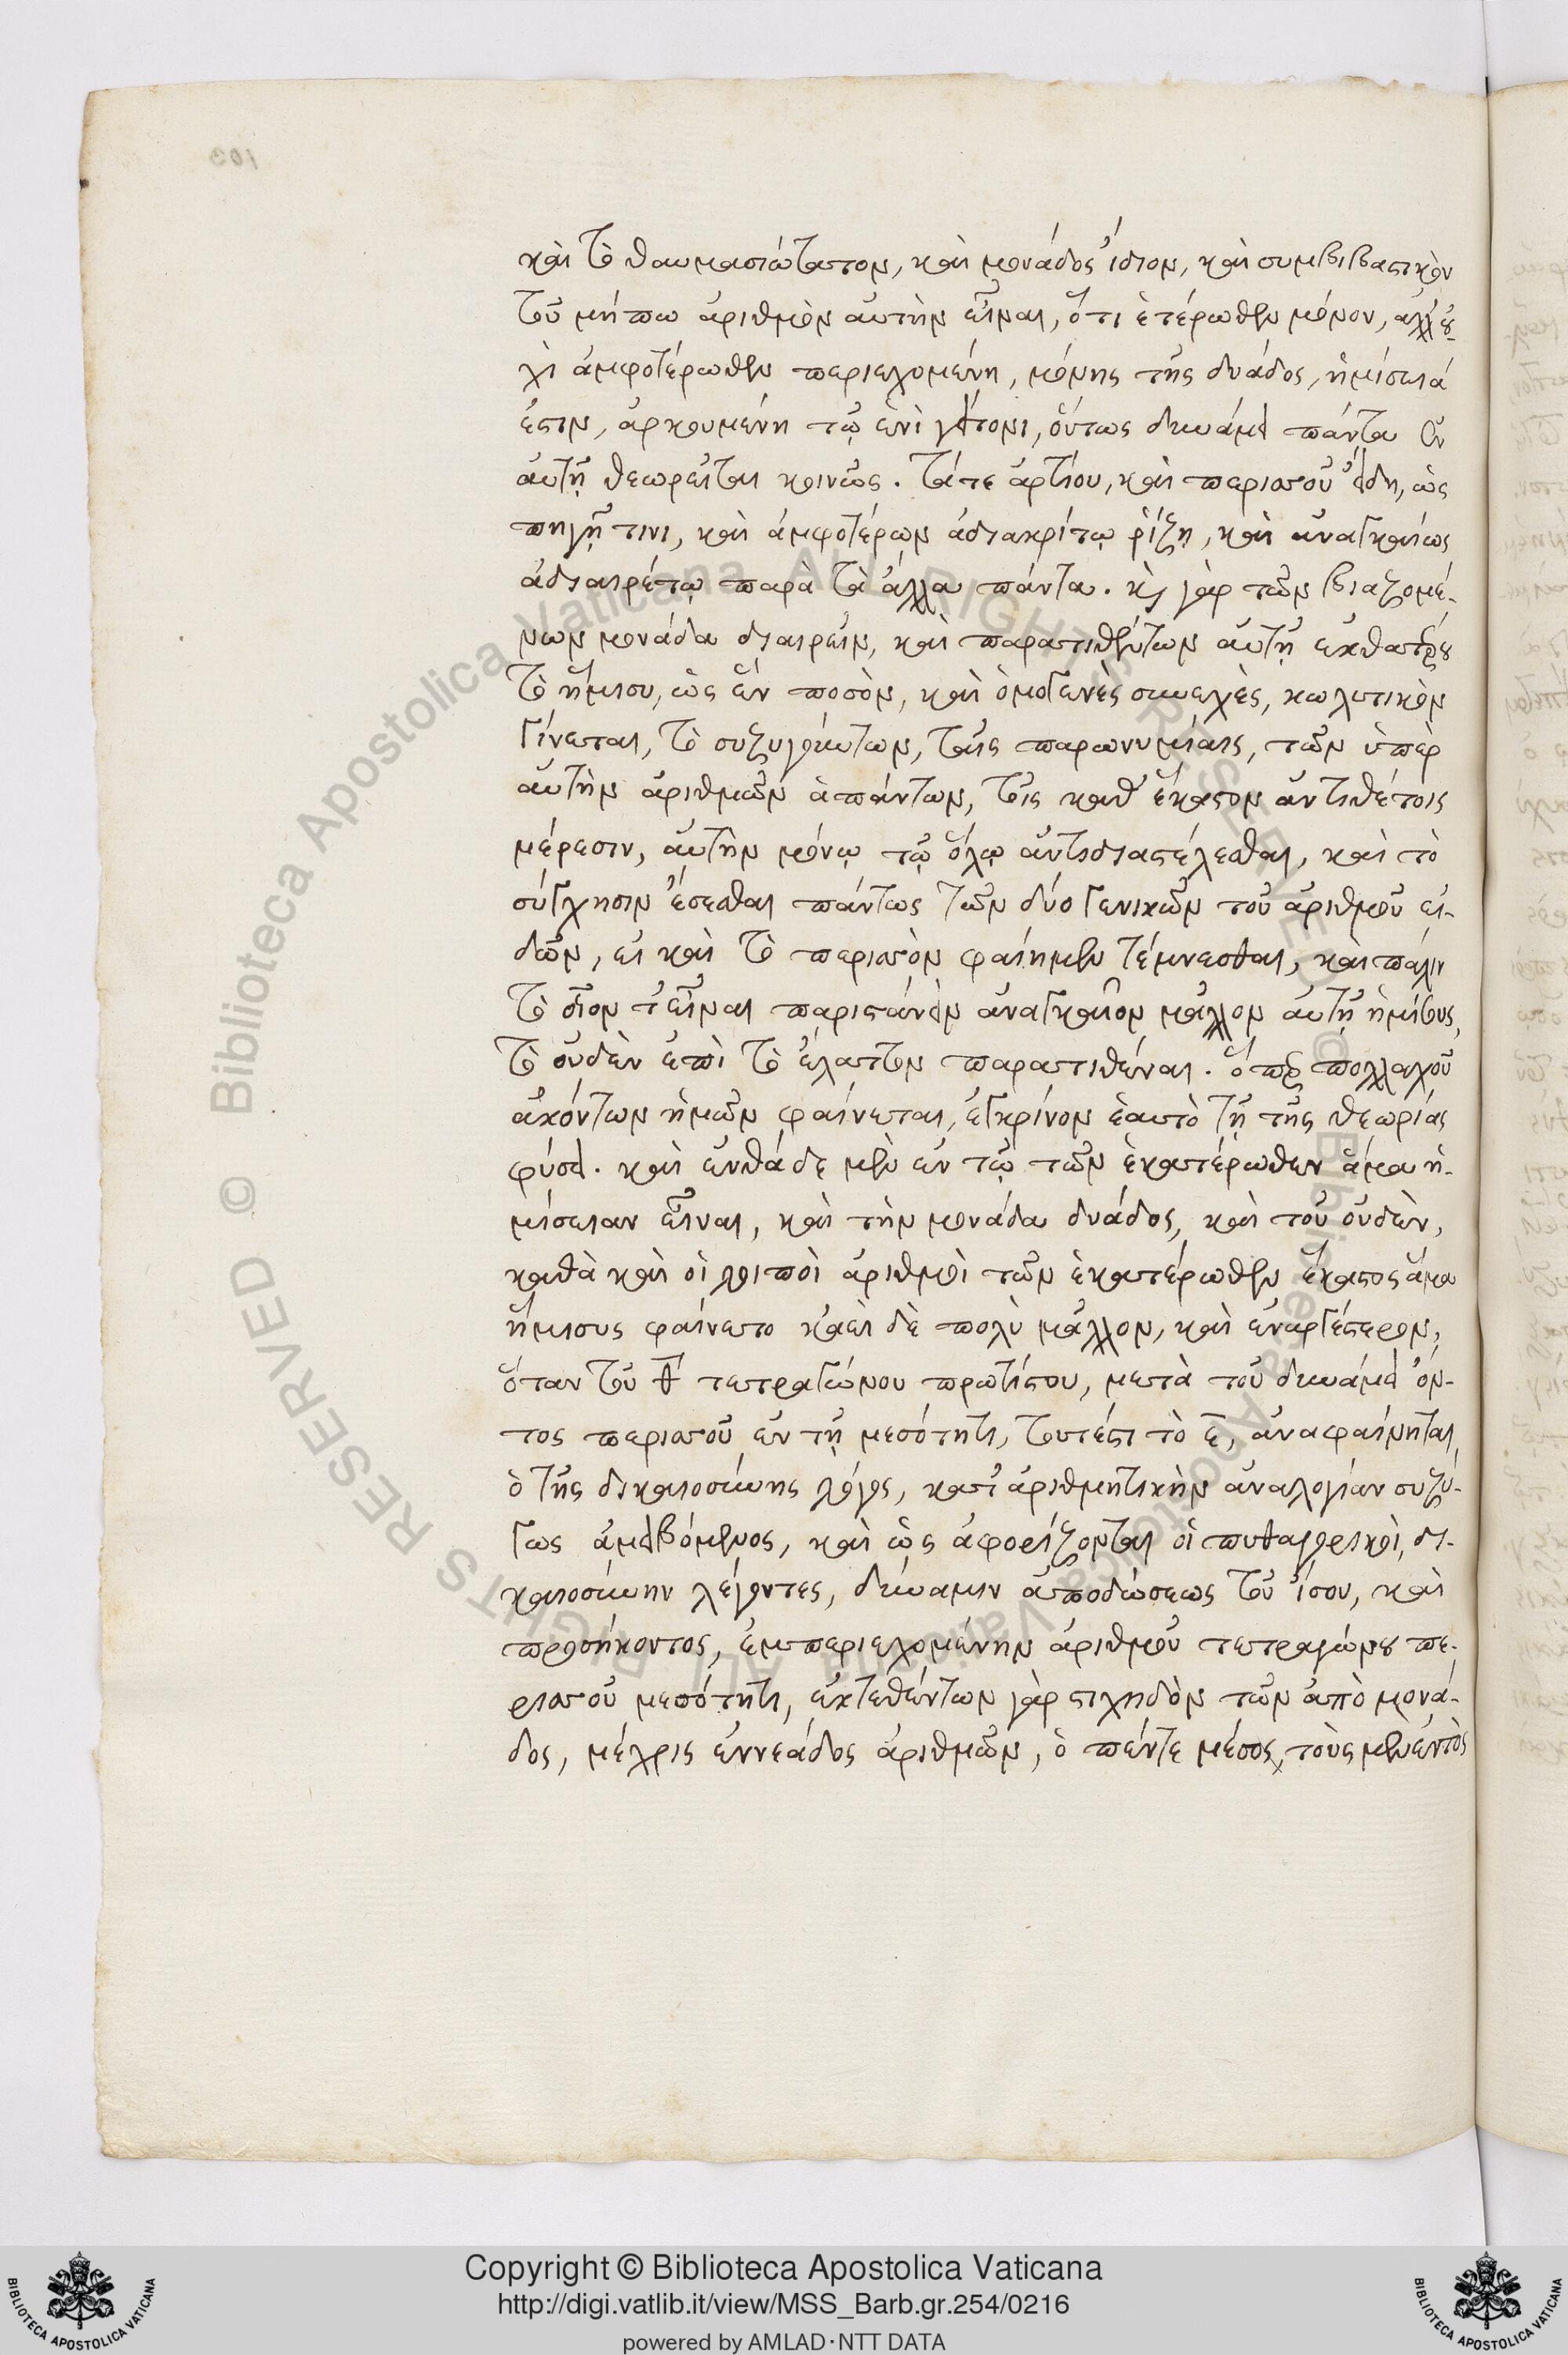 καὶ τὸ θαυμασιώτατον, καὶ μονάδος ἴδιον, καὶ συμβιβαστικὸν
τοῦ μήπω ἀριθμὸν αὐτὴν εἶναι, ὅτι ἑτέρωθεν μόνον, ἀλλ' οὐ-
χὶ ἀμφοτέρωθεν περιεχομένη, μόνης τῆς δυάδος, ἡμίσειά
ἐστιν, ἀρκουμένη τῷ ἑνὶ γείτονι, οὕτως δυνάμει πάντα ἐν
αὐτῇ θεωρεῖται κοινῶς. τά τε ἀρτίου, καὶ περισσοῦ εἴδη, ὡς
πηγῇ τινι, καὶ ἀμφοτέρων ἀδιακρίτῳ ῥίζῃ, καὶ ἀναγκαίως
ἀδιαιρέτῳ παρὰ τὰ ἄλλα πάντα. καὶ γὰρ τῶν βιαζομέ-
νων μονάδα διαιρεῖν, καὶ παρατιθέντων αὐτῇ ἑκατέρου
τὸ ἥμισυ, ὡς ἓν ποσὸν, καὶ ὁμογενὲς συνεχὲς, κωλυτικὸν
γίνεται, τὸ συζυγούντων, ταῖς παρωνυμίαις, τῶν ὑπὲρ
αὐτὴν ἀριθμῶν ἁπάντων, τοῖς καθ' ἕκαστον ἀντιθέτοις
μέρεσιν, αὐτὴν μόνῳ τῷ ὅλῳ ἀντιδιαστέλεσθαι, καὶ τὸ
σύγχησιν ἔσεσθαι πάντως τῶν δύο γενικῶν τοῦ ἀριθμοῦ εἰ-
δῶν, εἰ καὶ τὸ περισσὸν φαίημεν τέμνεσθαι, καὶ πάλιν
τὸ οἷον τ' εἶναι παριστάνειν ἀναγκαῖον μᾶλλον αὐτῇ ἡμίσους,
τὸ οὐδὲν ἐπὶ τὸ ἔλαττον παρατιθέναι. ὅπερ πολλαχοῦ
ἀκόντων ἡμῶν φαίνεται, ἐγκρίνον ἑαυτὸ τῇ τῆς θεωρίας
φύσει. καὶ ἐνθάδε μὲν ἐν τῷ τῶν ἑκατέρωθεν ἅμα ἡ-
μίσειαν εἶναι, καὶ τὴν μονάδα δυάδος, καὶ τοῦ οὐδὲν,
καθὰ καὶ οἱ λοιποὶ ἀριθμοὶ τῶν ἑκατέρωθεν ἕκαστος ἅμα
ἥμισυς φαίνετο κἀεὶ δὲ πολὺ μᾶλλον, καὶ ἐναργέστερον,
ὅταν τοῦ θ τετραγώνου πρωτίστου, μετὰ τοῦ δυνάμει ὄν-
τος περισσοῦ ἐν τῇ μεσότητι, τουτέστι τὸ ε, ἀναφαίνηται
ὁ τῆς δικαιοσύνης λόγος, κατ' ἀριθμητικὴν ἀναλογίαν συζύ-
γως ἀμειβόμενος, καὶ ὡς ἀφορίζονται οἱ πυθαγορικοὶ, δι-
καιοσύνην λέγοντες, δύναμιν ἀποδώσεως τοῦ ἴσου, καὶ
προσήκοντος, ἐμπεριεχομένην ἀριθμοῦ τετραγώνου πε-
ρισσοῦ μεσότητι, ἐκτεθέντων γὰρ στιχηδὸν τῶν ἀπὸ μονά-
δος, μέχρις ἐννεάδος ἀριθμῶν, ὁ πέντε μέσος, τοὺς μὲν ἐντὸς
Copyright © Biblioteca Apostolica Vaticana
http://digi.vatlib.it/view/MSS_Barb.gr.254/0216
powered by AMLAD·NTT DATA